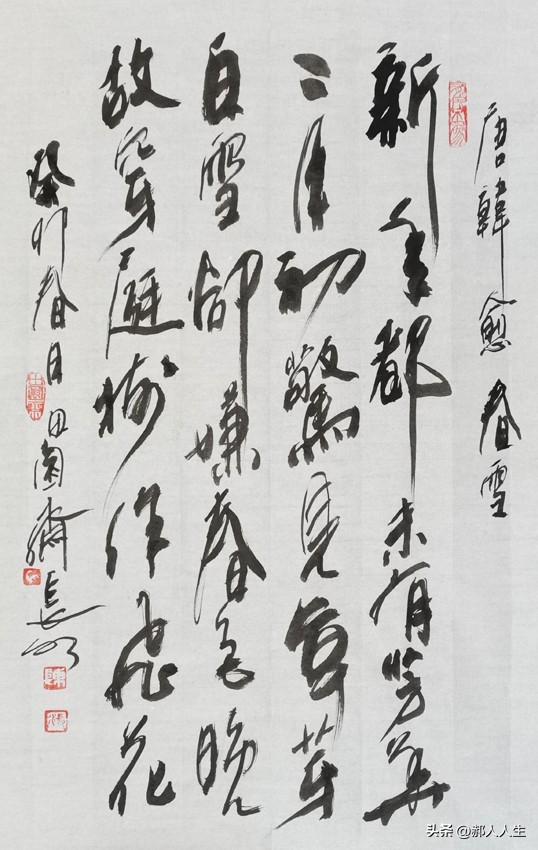 唐韓愈春雪
新年都未有芳華
二月初驚見草芽
白雪卻嫌春色晚
故穿庭樹作飛花
癸卯春月田
头条 @郝人人生